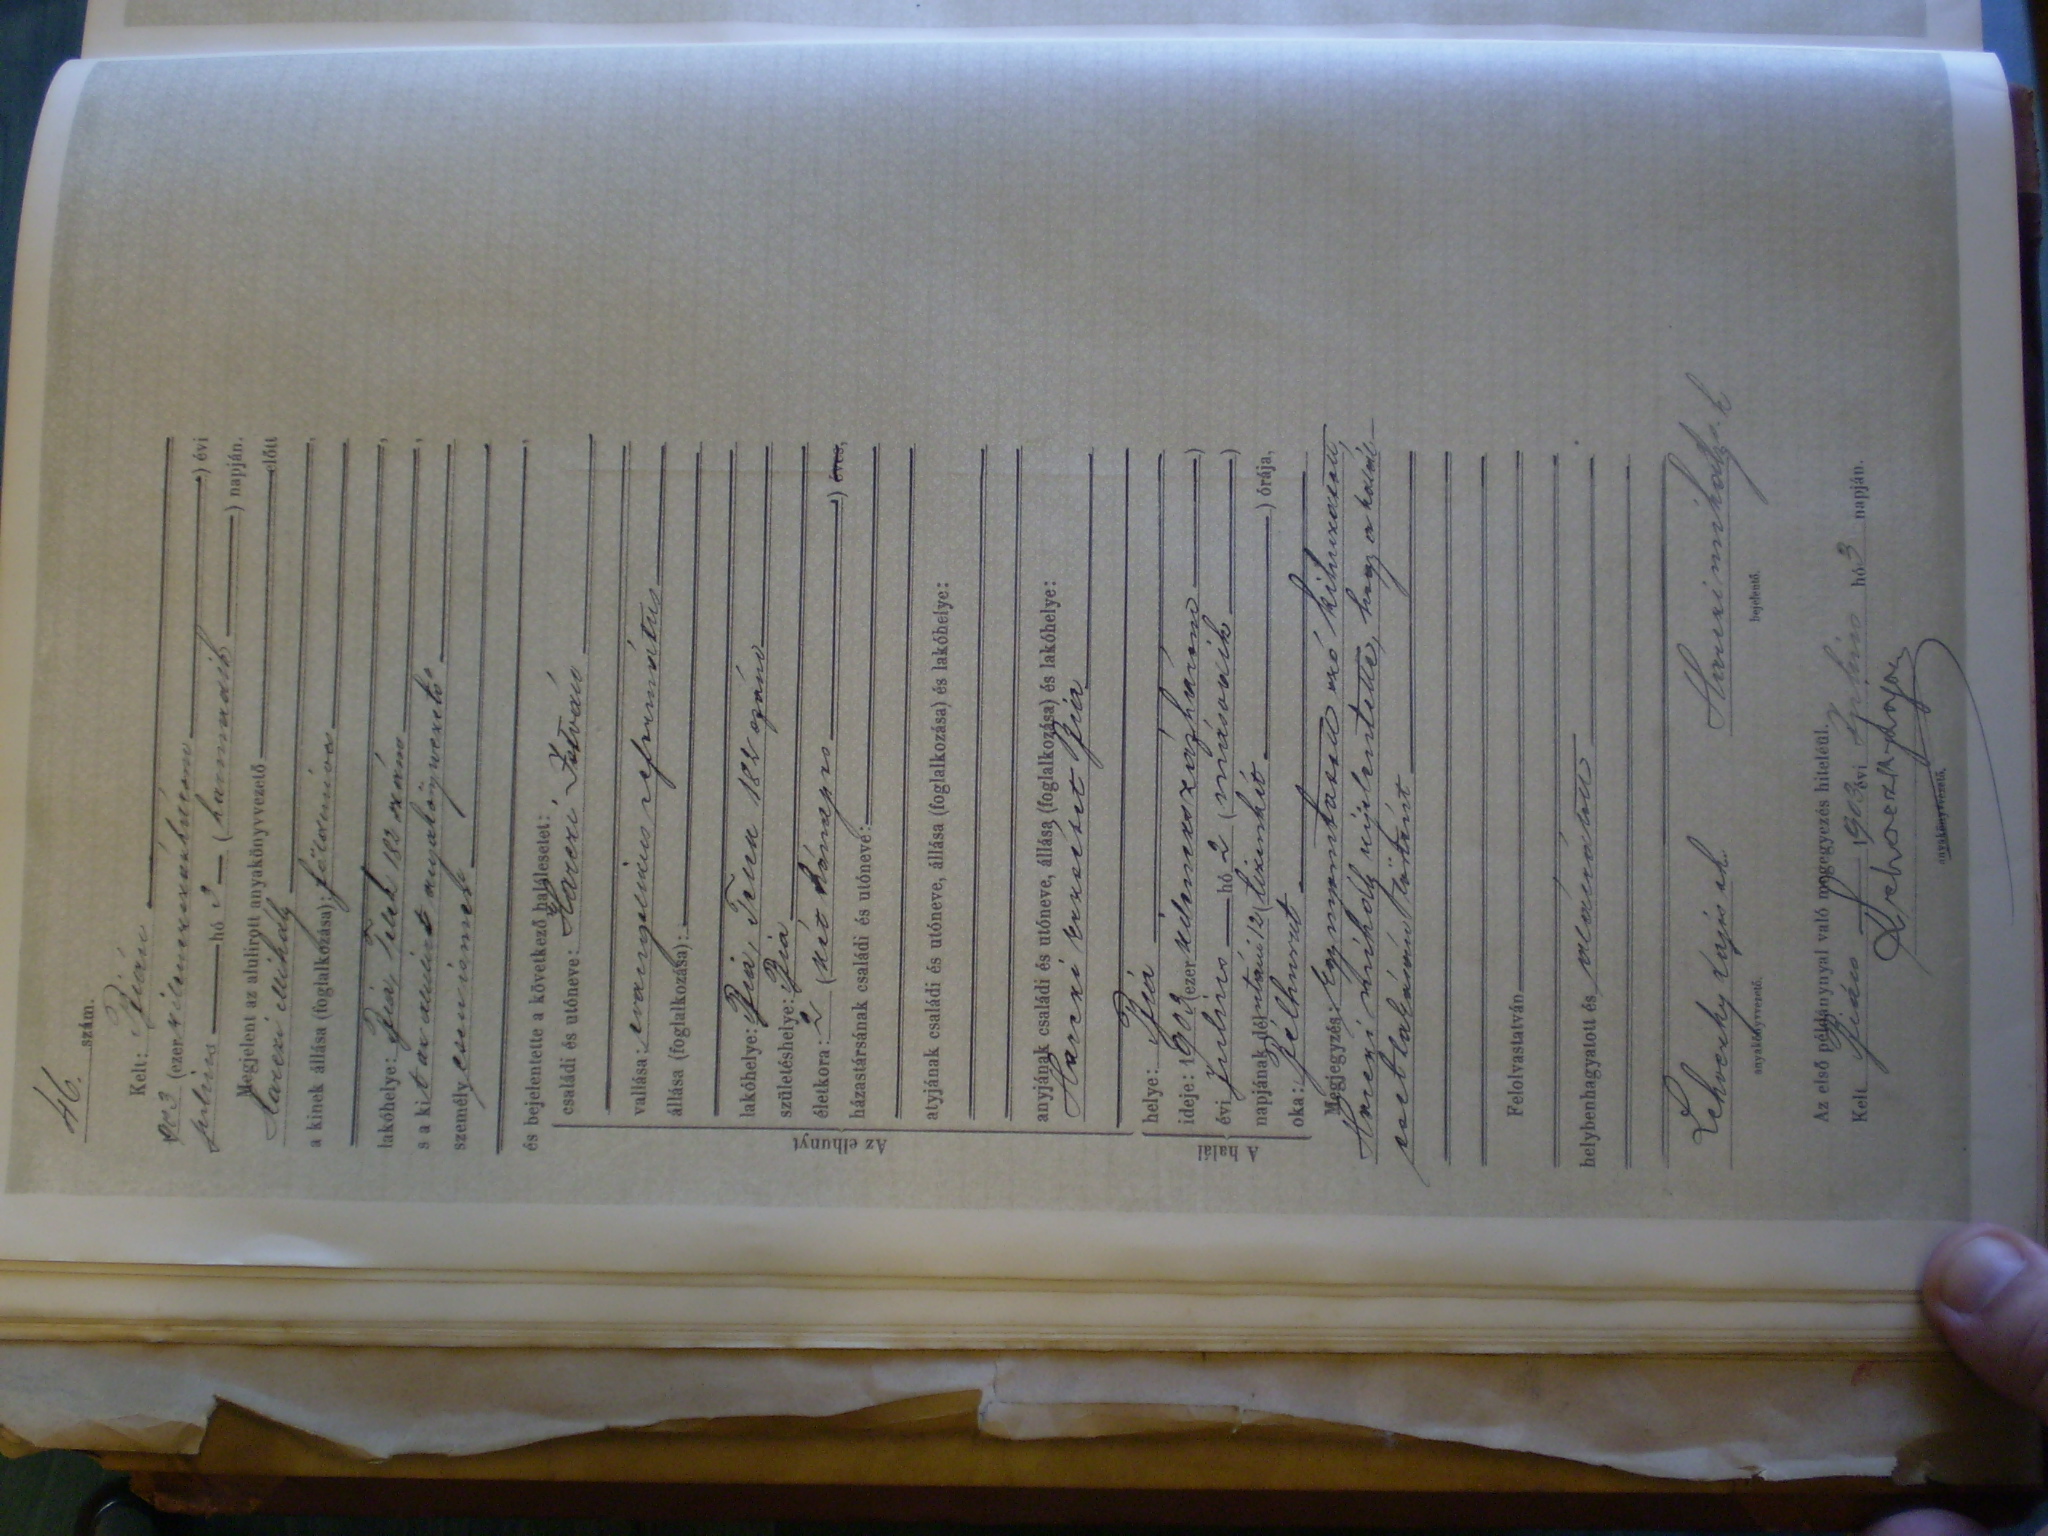 46. szám.
Kelt: Bián
1903 (ezerkilenczszázhárom) évi
julius hó 3 (harmadik) napján.
Megjelent az alulirott anyakönyvvezető előtt
Harczi Mihály
a kinek állása (foglalkozása): földmíves,
lakóhelye: Bia, Telek 182 szám,
s a kit az alulírt anyakönyvvezető,
személyesen ismer
és bejelentette a következő halálesetet:
Az elhunyt
családi és utóneve: Harczi István
vallása: evangelicus református
állása (foglalkozása):
lakóhelye: Bia, Telek 182 szám
születéshelye: Bia
életkora: 2 (két hónapos) éves,
házastársának családi és utóneve:
atyjának családi és utóneve, állása (foglalkozása) és lakóhelye:
anyjának családi és utóneve, állása (foglalkozása) és lakóhelye:
Harczi Erzsébet Bia
A halál
helye: Bia
ideje: 1903 (ezerkilenczszázhárom)
évi julius hó 2 (második)
napjának délutáni 12 (tizenkét) órája,
oka: bélhurut
Megjegyzés: Egy nyomtatott szó kihúzatott,
Harczi Mihály kijelentette, hogy a halál-
eset lakásán történt.
Felolvastatván
helybenhagyatott és aláíratott.
Lehoczky Lajos sk. Harczi Mihály s. k
anyakönyvvezető. bejelentő.
Az első példánynyal való megegyezés hiteléül.
Kelt Bián 1903 évi julius hó 3 napján.
Lehoczky Lajos
anyakönyvvezető.